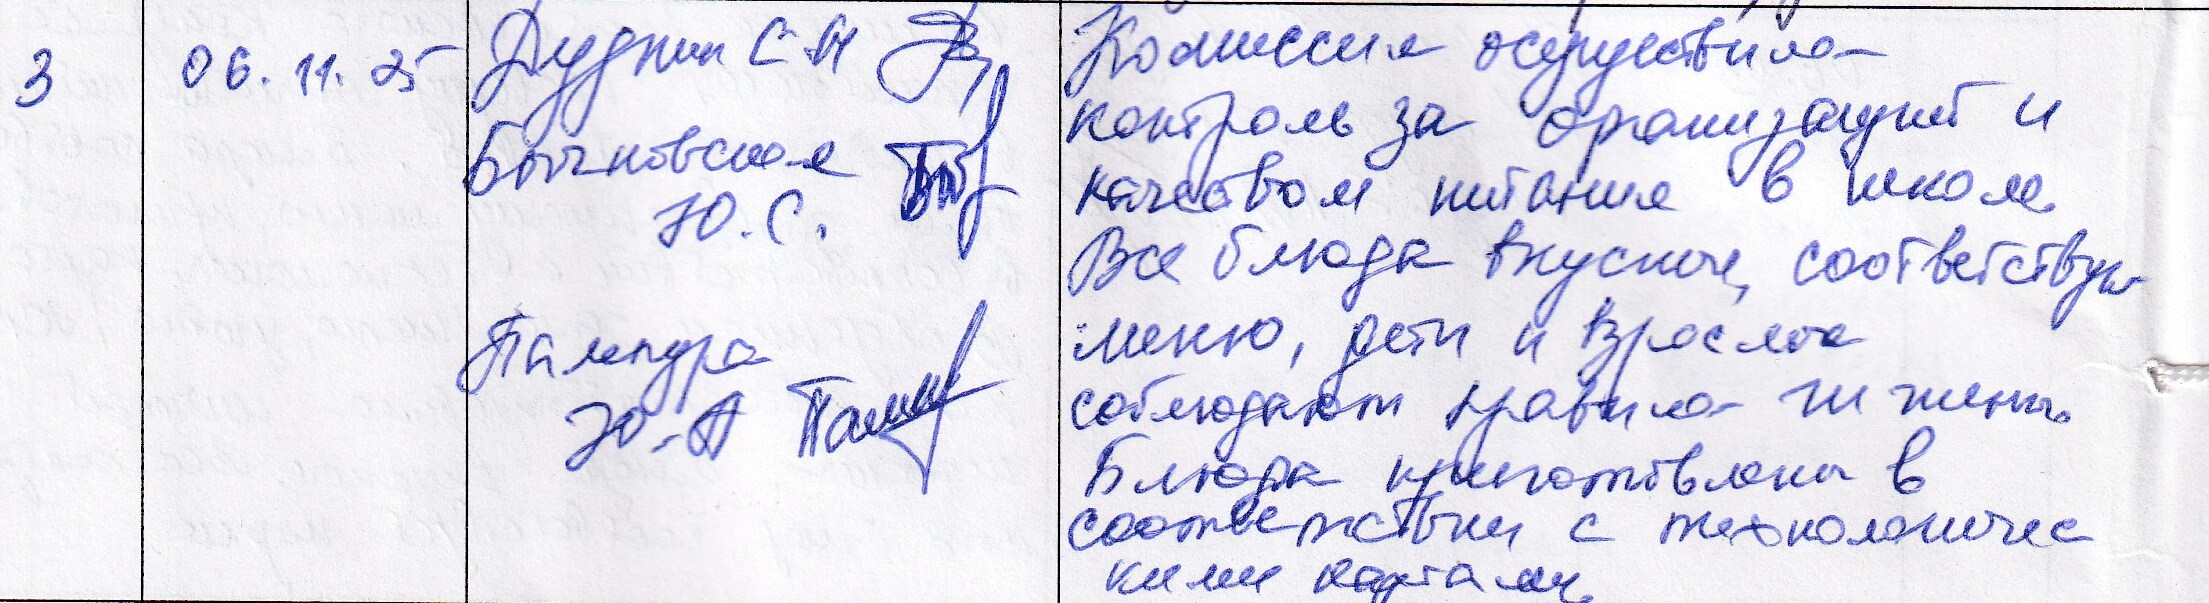 3
06.11.25
Дудкин С Н
Бычковская
Ю.С.
Палепура
Ю.А
Комиссия осуществила
контроль за организацией и
качеством питания в школе.
Все блюда вкусные, соответствуют
меню, дети и взрослые
соблюдают правила гигиены.
Блюда приготовлены в
соответствии с технологичес
кими картами.